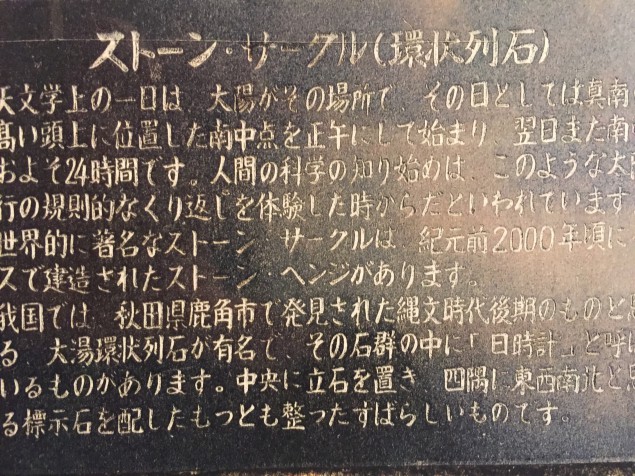 ストーン・サークル(環状列石)
天文学上の一日は、大陽がその場所で、その日としては真南
高い頭上に位置した南中点を正午にして始まり 翌日また南
およそ24時間です。人間の科学の知り始めは、このような太
行の規則的なくり返しを体験した時からだといわれています
世界的に著名なストーン・サークルは 紀元前2000年頃に
スで建造されたストーン・ヘンジがあります。
我国では、秋田県鹿角市で発見された縄文時代後期のものと
る 大湯環状列石が有名で、その石群の中に「日時計」と呼
いるものがあります。中央に立石を置き 四隅に東西南北と
る標示石を配したもっとも整ったすばらしいものです。